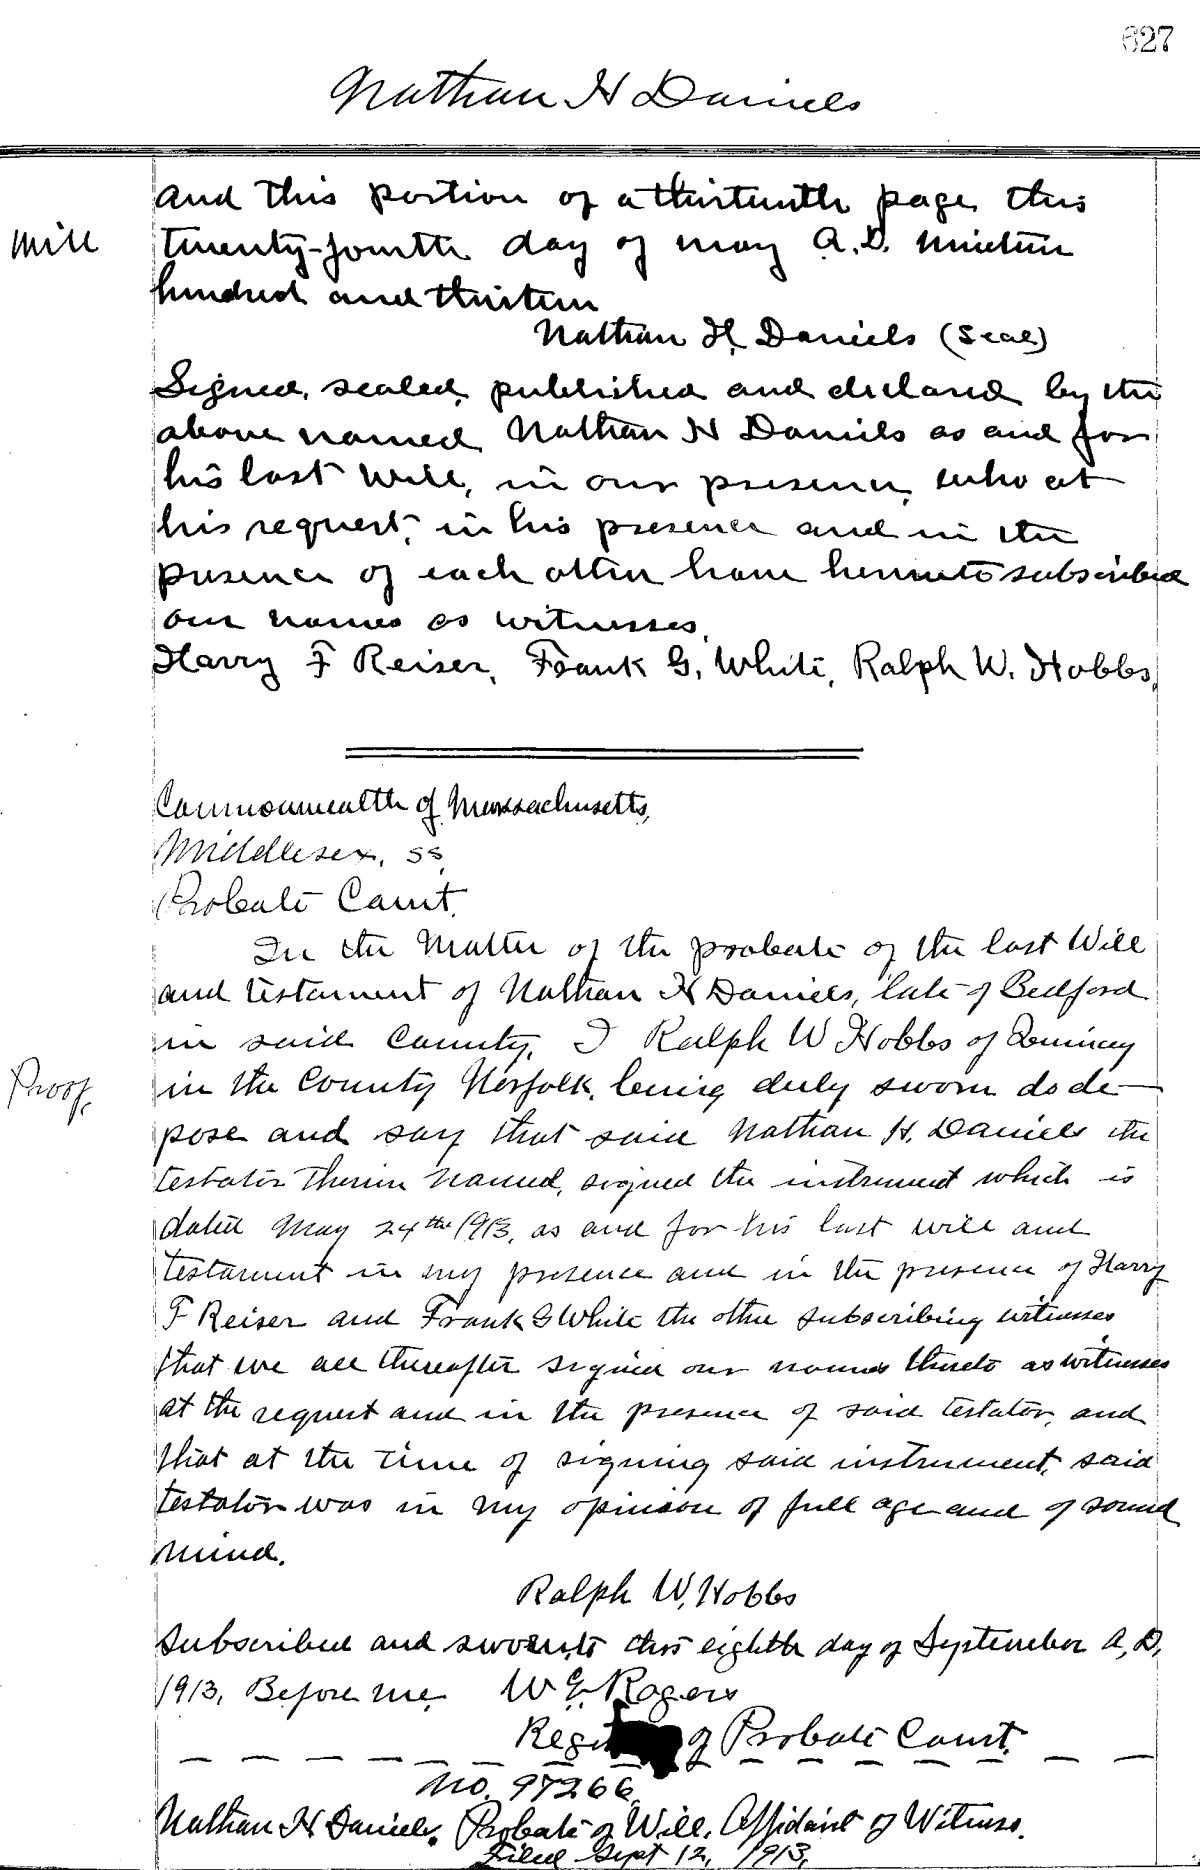 627
Nathan H Daniels
and this portion of a thirteenth page this
Will
twenty-fourth day of may A.D. nineteen
hundred and thirteen
Nathan H. Daniels (Seal)
Signed, sealed, published and declared by the
above named Nathan H Daniels as and for
his last Will, in our presence, who at
his request, in his presence and in the
presence of each other have hereunto subscribed
our names as witnesses.
Harry F Reiser, Frank G. White, Ralph W. Hobbs.
Commonwealth of Massachusetts,
Middlesex, ss.
Probate Court.
In the Matter of the probate of the last Will
and testament of Nathan H Daniels, late of Bedford
in said County, I Ralph W Hobbs of Quincy
Proof.
in the County Norfolk, being duly sworn do de-
pose and say that said Nathan H. Daniels the
testator therein named, signed the instrument which is
dated May 24th 1913, as and for his last will and
testament in my presence and in the presence of Harry
F Reiser and Frank G White the other subscribing witnesses
that we all thereafter signed our names thereto as witnesses
at the request and in the presence of said testator, and
that at the time of signing said instrument, said
testator was in my opinion of full age and of sound
mind.
Ralph W. Hobbs
Subscribed and sworn to this eighth day of September A.D.
1913, Before me, W E Rogers
of Probate Court.
No. 97266.
Nathan H Daniels, Probate of Will, Affidavit of Witness.
Filed Sept 12, 1913.